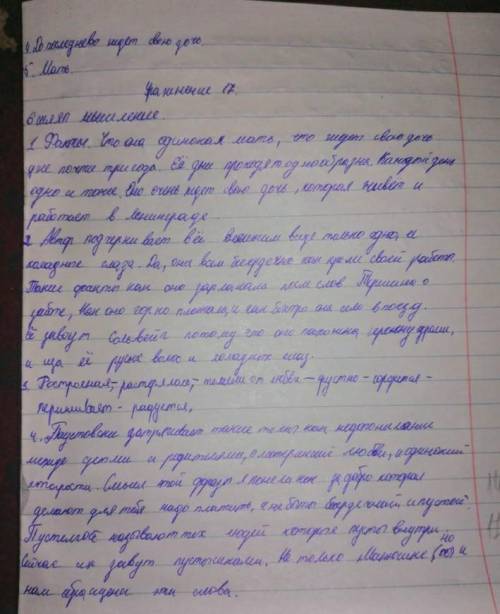 4. До последнево ждет свою дочь.
5. Мать.
Упражнение 17.
6 шляп мышление.
1 Факты. Что она одинокая мать, что ждет свою дочь
уже почти три года. Её дни проходят однообразна. Каждый день
одно и тоже. Она очень ждет свою дочь, которая живет и
работает в Ленинграде
2. Автор подчеркивает в её внешним виде только одно, её
холодные глаза. Да, она всем бессердечно как кроме своей работы.
Такие факты как она зарыдала после слов Тершина о
заботе, Как она горько плотала, и как быстро она села в поезд.
Её завут Сольвейг потому что она похожа героину драмы,
из за её русых волос и холодных глаз.
3. Построения, растерялась, тяжело от любви - грустно - гордится -
переживает - радуется.
4. Паустовский затрагивает такие темы как недопонимании
между детьми и родителями, о материнской любви, и одинокий
старости. Смысл этой фразы я поняла как за добро которая
делают для тебя надо платить, а не быть бессердечный и пустой.
Пустельгой называют тех людей которые пусты внутри.
Сейчас их завут пустышками. Не только Манюшке, но и
нам обращены эти слова.